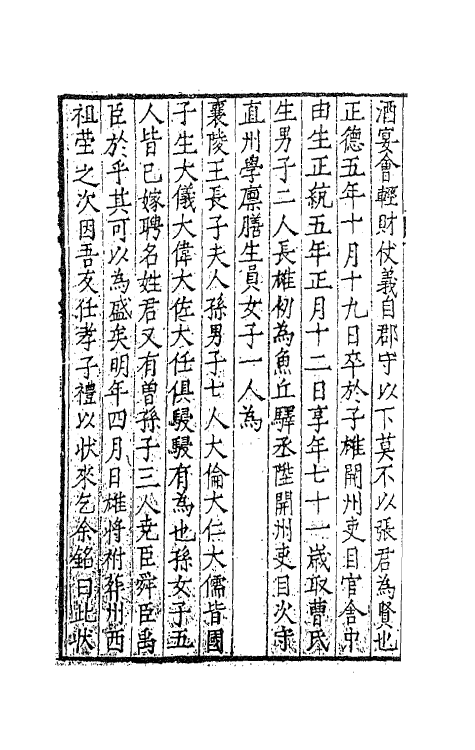 酒宴會輕財仗義自郡守以下莫不以張君為賢也
正德五年十月十九日卒於子樁開州吏目官舍中
由生正統五年正月十二日享年七十一歲取曹氏
生男子二人長樁初為魚丘驛丞陞開州吏目次守
直州學廩膳生員女子一人為
襄陵王長子夫人孫男子七人大倫大仁大儒皆國
子生大儀大偉大佐大任俱駸駸有為也孫女子五
人皆已嫁聘名姓君又有曽孫子三人堯臣舜臣禹
臣於乎其可以為盛矣明年四月日樁將祔葬州西
祖塋之次因吾友任孝子禮以狀來乞余銘曰此狀